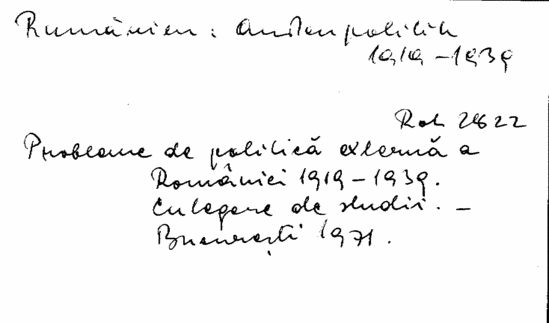 Rumänien: Außenpolitik
1919-1939
Rok 2822
Probleme de politică externă a
României 1919-1939.
Culegere de studii. -
București 1971.